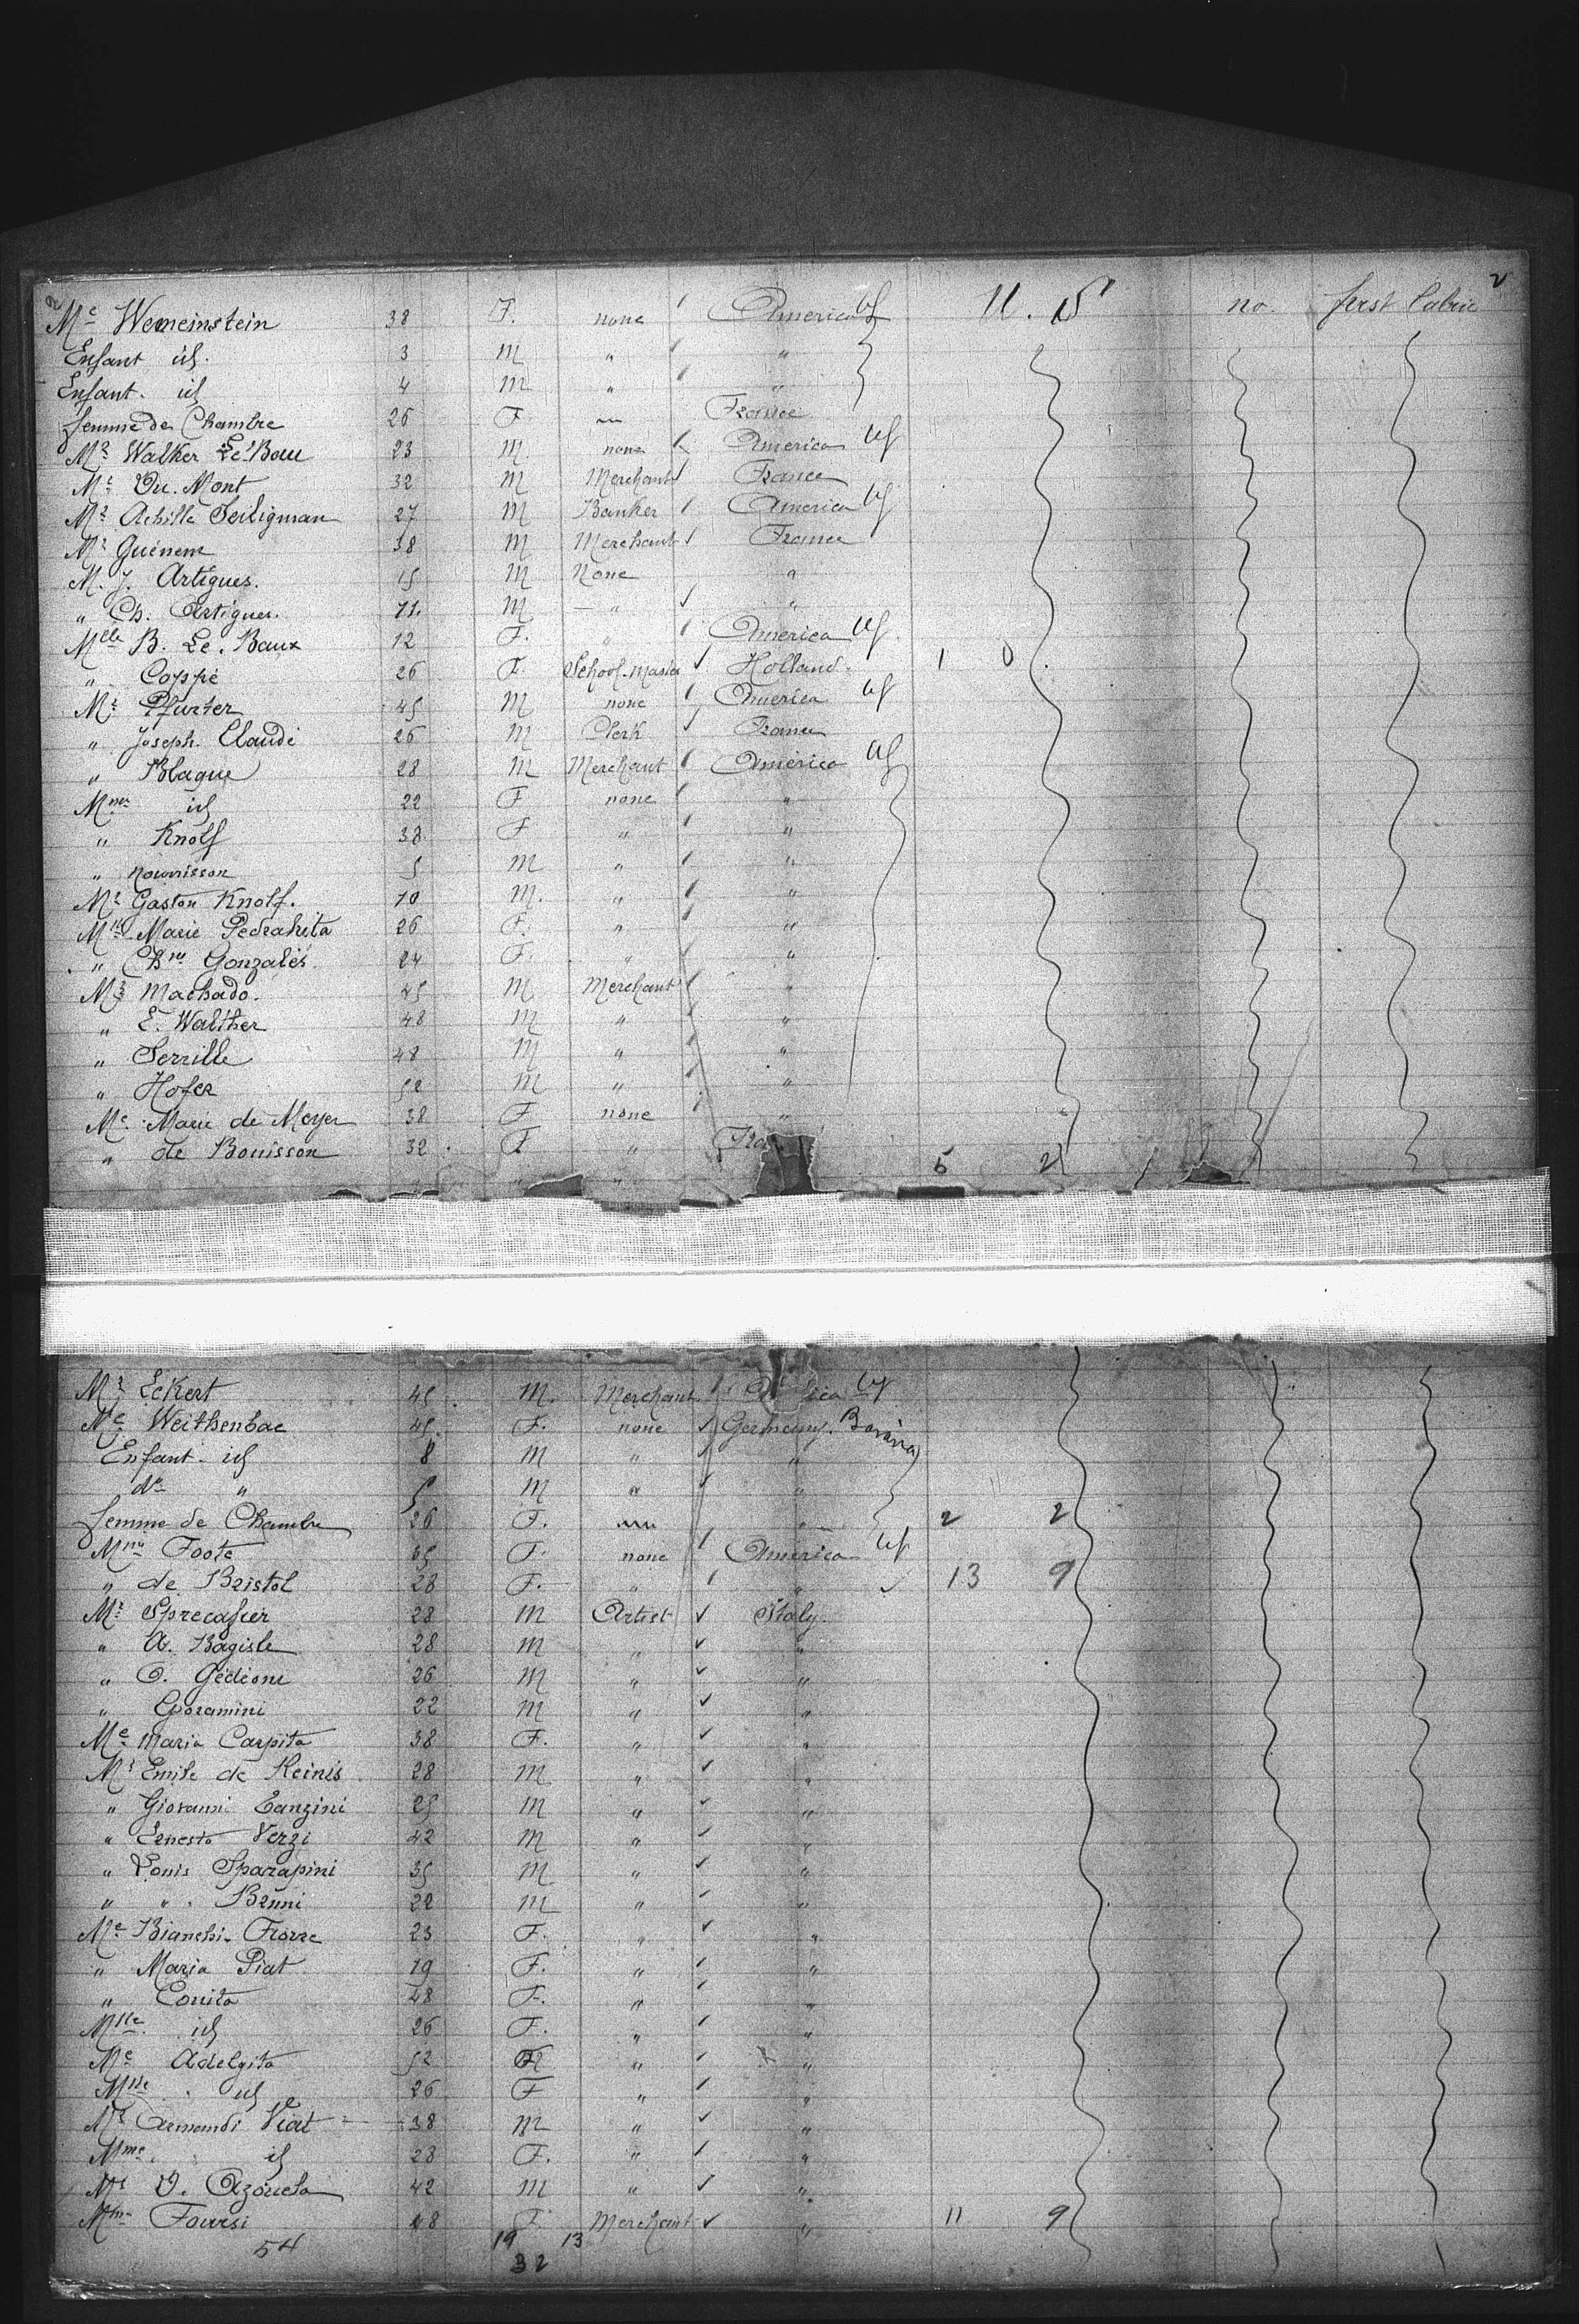 2
Me Wemeinstein 38 F. none America US U. S no. first Cabin
Enfant id. 3 M " "
Enfant. id 4 M " "
femme de Chambre 26 F. " France
Mr Walker Le Bau 23 M none America US
Mr Du. Mont 32 M Merchant France
Mr Achille Seiligman 27 M Banker America US
Mr Guénem 38 M Merchant France
M. J. Artigues. 15 M None "
" Ch. Artigues. 11. M " "
Melle B. Le. Baux 12 F. " America US
" Coppé 26 F. School. Master Holland. 1 0
Mr Pfurter 45 M none America US
" Joseph. Claude 26 M Clerk France
" Blaque 28 M Merchant America US
Mme id 22 F none "
" Knolf 38 F " "
" nourrisson 5 M " "
Mr Gaston Knolf. 10 M. " "
Mlle Marie Pedrahita 26 F. " "
" Gonzalés 24 F. " "
Mr Machado. 45 M Merchant "
" E. Walther 48 M " "
" Serrille 48 M " "
" Hofer 52 M " "
Me. Marie de Meyer 38 F none "
" de Bouisson 32 F " Fra 5 2
Mr Eckert 45 M. Merchant US
Me Weithenbac 45 F. none Germany. Bavaria
Enfant id 8 M " "
do " 5 M " "
femme de Chambre 26 F. " " 2 2
Mme Foote 65 F. none America US
" de Bristol 28 F. " " 13 9
Mr Sprecafier 28 M Artist Italy.
" A. Bagisle 28 M " "
" O. Gédéone 26 M " "
" Goramini 22 M " "
Me Maria Carpita 38 F. " "
Mr Emile de Reinis 28 M " "
" Giovanni Eanzini 25 M " "
" Ernesto Verzi 42 M " "
" Louis Sparapini 35 M " "
" " Bruni 22 M " "
Me Bianchi. Fiorre 23 F. " "
" Maria Piat 19 F. " "
" Conita 48 F. " "
Mlle id 26 F. " "
Me Adelgita 52 F " "
Mlle id 26 F " "
Mr Armandi Viat 38 M " "
Mme id 28 F. " "
Mr D. Azoucta 42 M " "
Mme Foursi 48 F. Merchant " 11 9
54 19 13
32